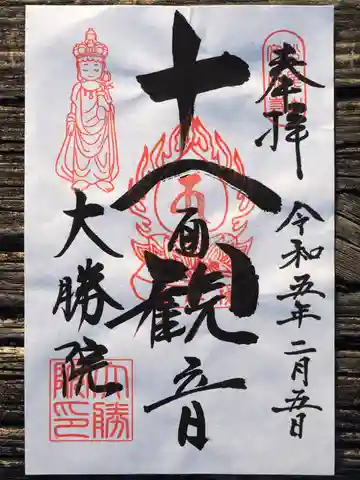 奉拝
令和五年二月五日
十一面観音
大勝院
大勝
院印